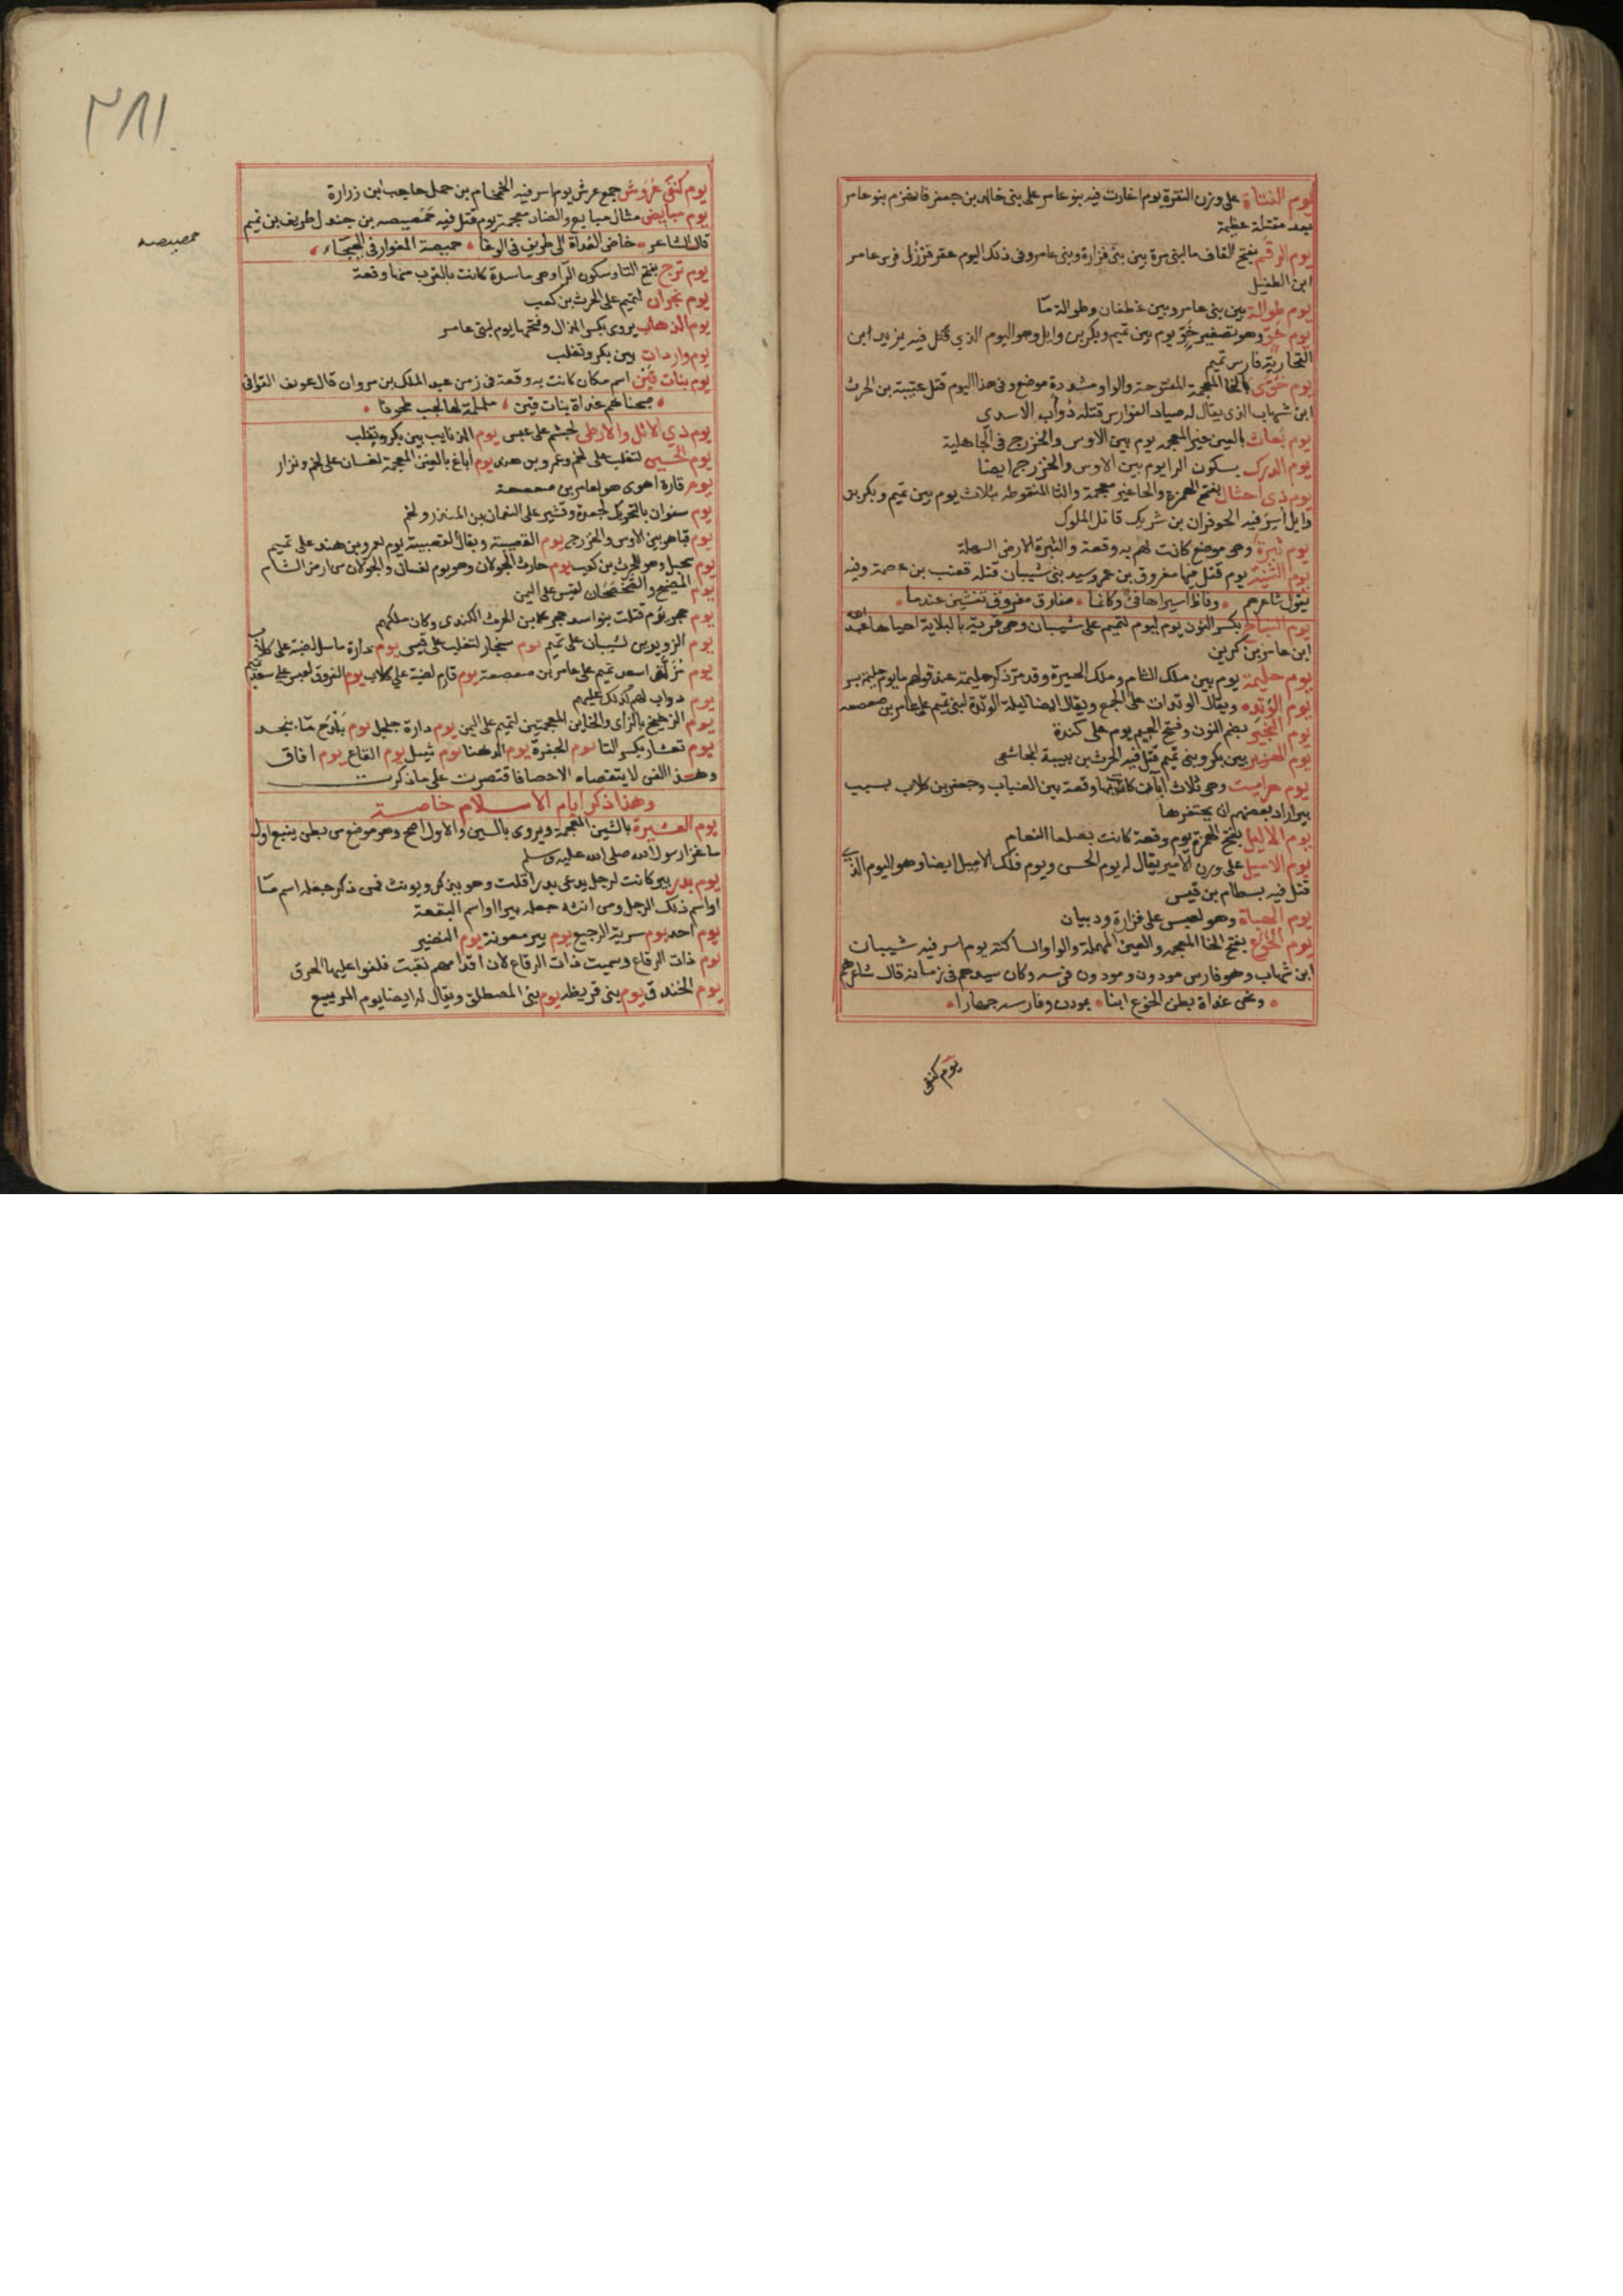 يوم النتاة على وزن النقرة يوم اغارت فيه بنو عامر على بني خالد بن جعفر فانهزم بنو عامر
بعد مقتلة عظيمة
يوم الرقم بفتح القاف ما لبني مرة بين بني فزارة وبني عامر وفي ذلك اليوم عقر قرزل فرس عامر
ابن الطفيل
يوم طوالة بين بني عامر وبين غطفان وطوالة ما
يوم خوي وهو تصغير خو يوم بين تميم وبكر بن وايل وهو اليوم الذي قتل فيه يزيد ابن
القحارية فارس تميم
يوم خوى بالخا المعجمة المفتوحة والواو مشددة موضع وفي هذا اليوم قتل عتيبة بن الحرث
ابن شهاب الذي يقال له صياد الفوارس قتله ذواب الاسدي
يوم بعاث بالعين غير المعجمه يوم بين الاوس والخزرج في الجاهلية
يوم الدرك بسكون الرا يوم بين الاوس والخزرج ايضا
يوم ذي احثال بفتح الهمزة والحا غير معجمة والثا المنقوطه بثلاث يوم بين تميم وبكر بن
وايل أسر فيه الحوفزان بن شريك قاتل الملوك
يوم ثبرة وهو موضع كانت لهم به وقعة والثبرة الارض السهلة
يوم الثنية يوم قتل فيها مفروق بن عمرو سيد بني شيبان قتله قعنب بن عصمة وفيه
يقول شاعرهم وفاظ اسيرا هانئ وكانما مفارق مفروق تغشين عندما
يوم النباج بكسر النون يوم لتميم على شيبان وهي قرية بالبادية احياها عبد الله
ابن عامر بن كريز
يوم حليمة يوم بين ملك الشام وملك الحيرة وقد مر ذكر حليمة عند قولهم ما يوم حليمة بسر
يوم الوتده ويقال الوتدات على الجمع ويقال ايضا ليلة الوتدة لبني تميم على عامر بن صعصعه
يوم النجير بضم النون وفتح الجيم يوم على كندة
يوم الهزبر بين بكر وبني تميم قتل فيه الحرث بن بيبة المجاشعي
يوم هراميت وهي ثلاث آبار كانت بها وقعة بين الضباب وجعفر بن كلاب بسبب
بير اراد بعضهم ان يحتفرها
يوم الاليل بفتح الهمزة يوم وقعة كانت بصلعا النعام
يوم الاميل على وزن الامير يقال له يوم الحسن ويوم فلك الاميل ايضا وهو اليوم الذي
قتل فيه بسطام بن قيس
يوم الهباة وهو لعبس على فزارة وذبيان
يوم الخوع بفتح الخا المعجمه والعين المهملة والواو الساكنة يوم اسر فيه شيبان
ابن شهاب وهو فارس مودون ومودون فرسه وكان سيدهم في زمانه قال شاعرهم
ونحن غداة بطن الخوع ابنا بمودن وفارسه جهارا
يوم كنفى
٣٨١
حمصيصه
يوم كنفى عروش جمع عرش يوم اسر فيه الخمخام بن حمل حاجب ابن زرارة
يوم مبايض مثال مبايع والضاد معجمة يوم قتل فيه حمصيصه بن جندل طريف بن تميم
قال الشاعر خاض الغداة الى طريف في الوغا حميصة المغوار في الهيجاء
يوم ترج بفتح التا وسكون الرا وهي ماسدة كانت بالقرب منها وقعة
يوم نجران لتميم على الحرث بن كعب
يوم الذهاب يروى بكسر الذال وفتحها يوم لبني عامر
يوم واردات بين بكر وتغلب
يوم بنات قين اسم مكان كانت به وقعة في زمن عبد الملك بن مروان قال عويف القوافي
صبحناهم غداة بنات قين ململمة لها لجب طحونا
يوم ذي الاثل والارطى لجشم على عبس يوم الذنايب بين بكر وتغلب
يوم الحسين لتغلب على لخم وعمرو بن هند يوم أباغ بالغين المعجمة لغسان على لخم ونزار
يوم قارة اهوى هو لعامر بن صعصعة
يوم سفوان بالتحريك لجعدة وقشير على النعمان بن المنذر ولخم
يوم قبا هو بين الاوس والخزرج يوم القصيبة ويقال القصيبية يوم لعمرو بن هند على تميم
يوم سحبل وهو للحرث بن كعب يوم حارث الجولان وهو يوم لغسان والجولان من ارض الشام
يوم المضيح والضحضحان لقيس على اليمن
يوم حجر يوم قتلت بنو اسد حجر بن الحرث الكندي وكان ملكهم
يوم الزويرين لشيبان على تميم يوم سنجار لتغلب على قيس يوم دارة ماسل لضبة على كلاب
يوم اسعد تميم على عامر بن صعصعة يوم قارم لضبة على كلاب يوم الفروق لعبس على سعد تميم
يوم دواب لهم كذلك عليهم
يوم الزخيخ بالزاى والخاين المعجمتين لتميم على اليمن يوم دارة جلجل يوم بلدح ما بنجد
يوم تعشار بكسر التا يوم الجفرة يوم الدهنا يوم ثيتل يوم القاع يوم افاق
وهذا الفن لا يتقصاه الاحصا فاقتصرت على ما ذكرت
وهذا ذكر ايام الاسلام خاصة
يوم العشيرة بالشين المعجمة ويروى بالسين والاول اصح وهو موضع من بطن ينبع اول
ما غزا رسول الله صلى الله عليه وسلم
يوم بدر بير كانت لرجل يدعى بدرا قلت وهو يذكر ويونث فمن ذكر جعله اسم ما
او اسم ذلك الرجل ومن انثه جعله بيرا او اسم البقعة
يوم احد يوم سرية الرجيع يوم بير معونة يوم النضير
يوم ذات الرقاع وسميت ذات الرقاع لان اقدامهم نقبت فلفوا عليها الخرق
يوم الخندق يوم بني قريظه يوم بني المصطلق ويقال له ايضا يوم المريسيع